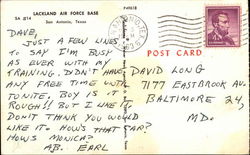 LACKLAND AIR FORCE BASE
SA #14
San Antonio, Texas
P49618
POST CARD
DAVE,
JUST A FEW LINES
TO SAY I'M BUSY
AS EVER WITH MY
TRAINING. DIDN'T HAVE
ANY FREE TIME UNTIL
TONITE. BOY IS IT
ROUGH!! BUT I LIKE IT
DON'T THINK YOU WOULD
LIKE IT. HOW'S THAT CAR?
HOW'S MONICA?
AB. EARL
DAVID LONG
7177 EASTBROOK AV.
BALTIMORE 24,
MD.